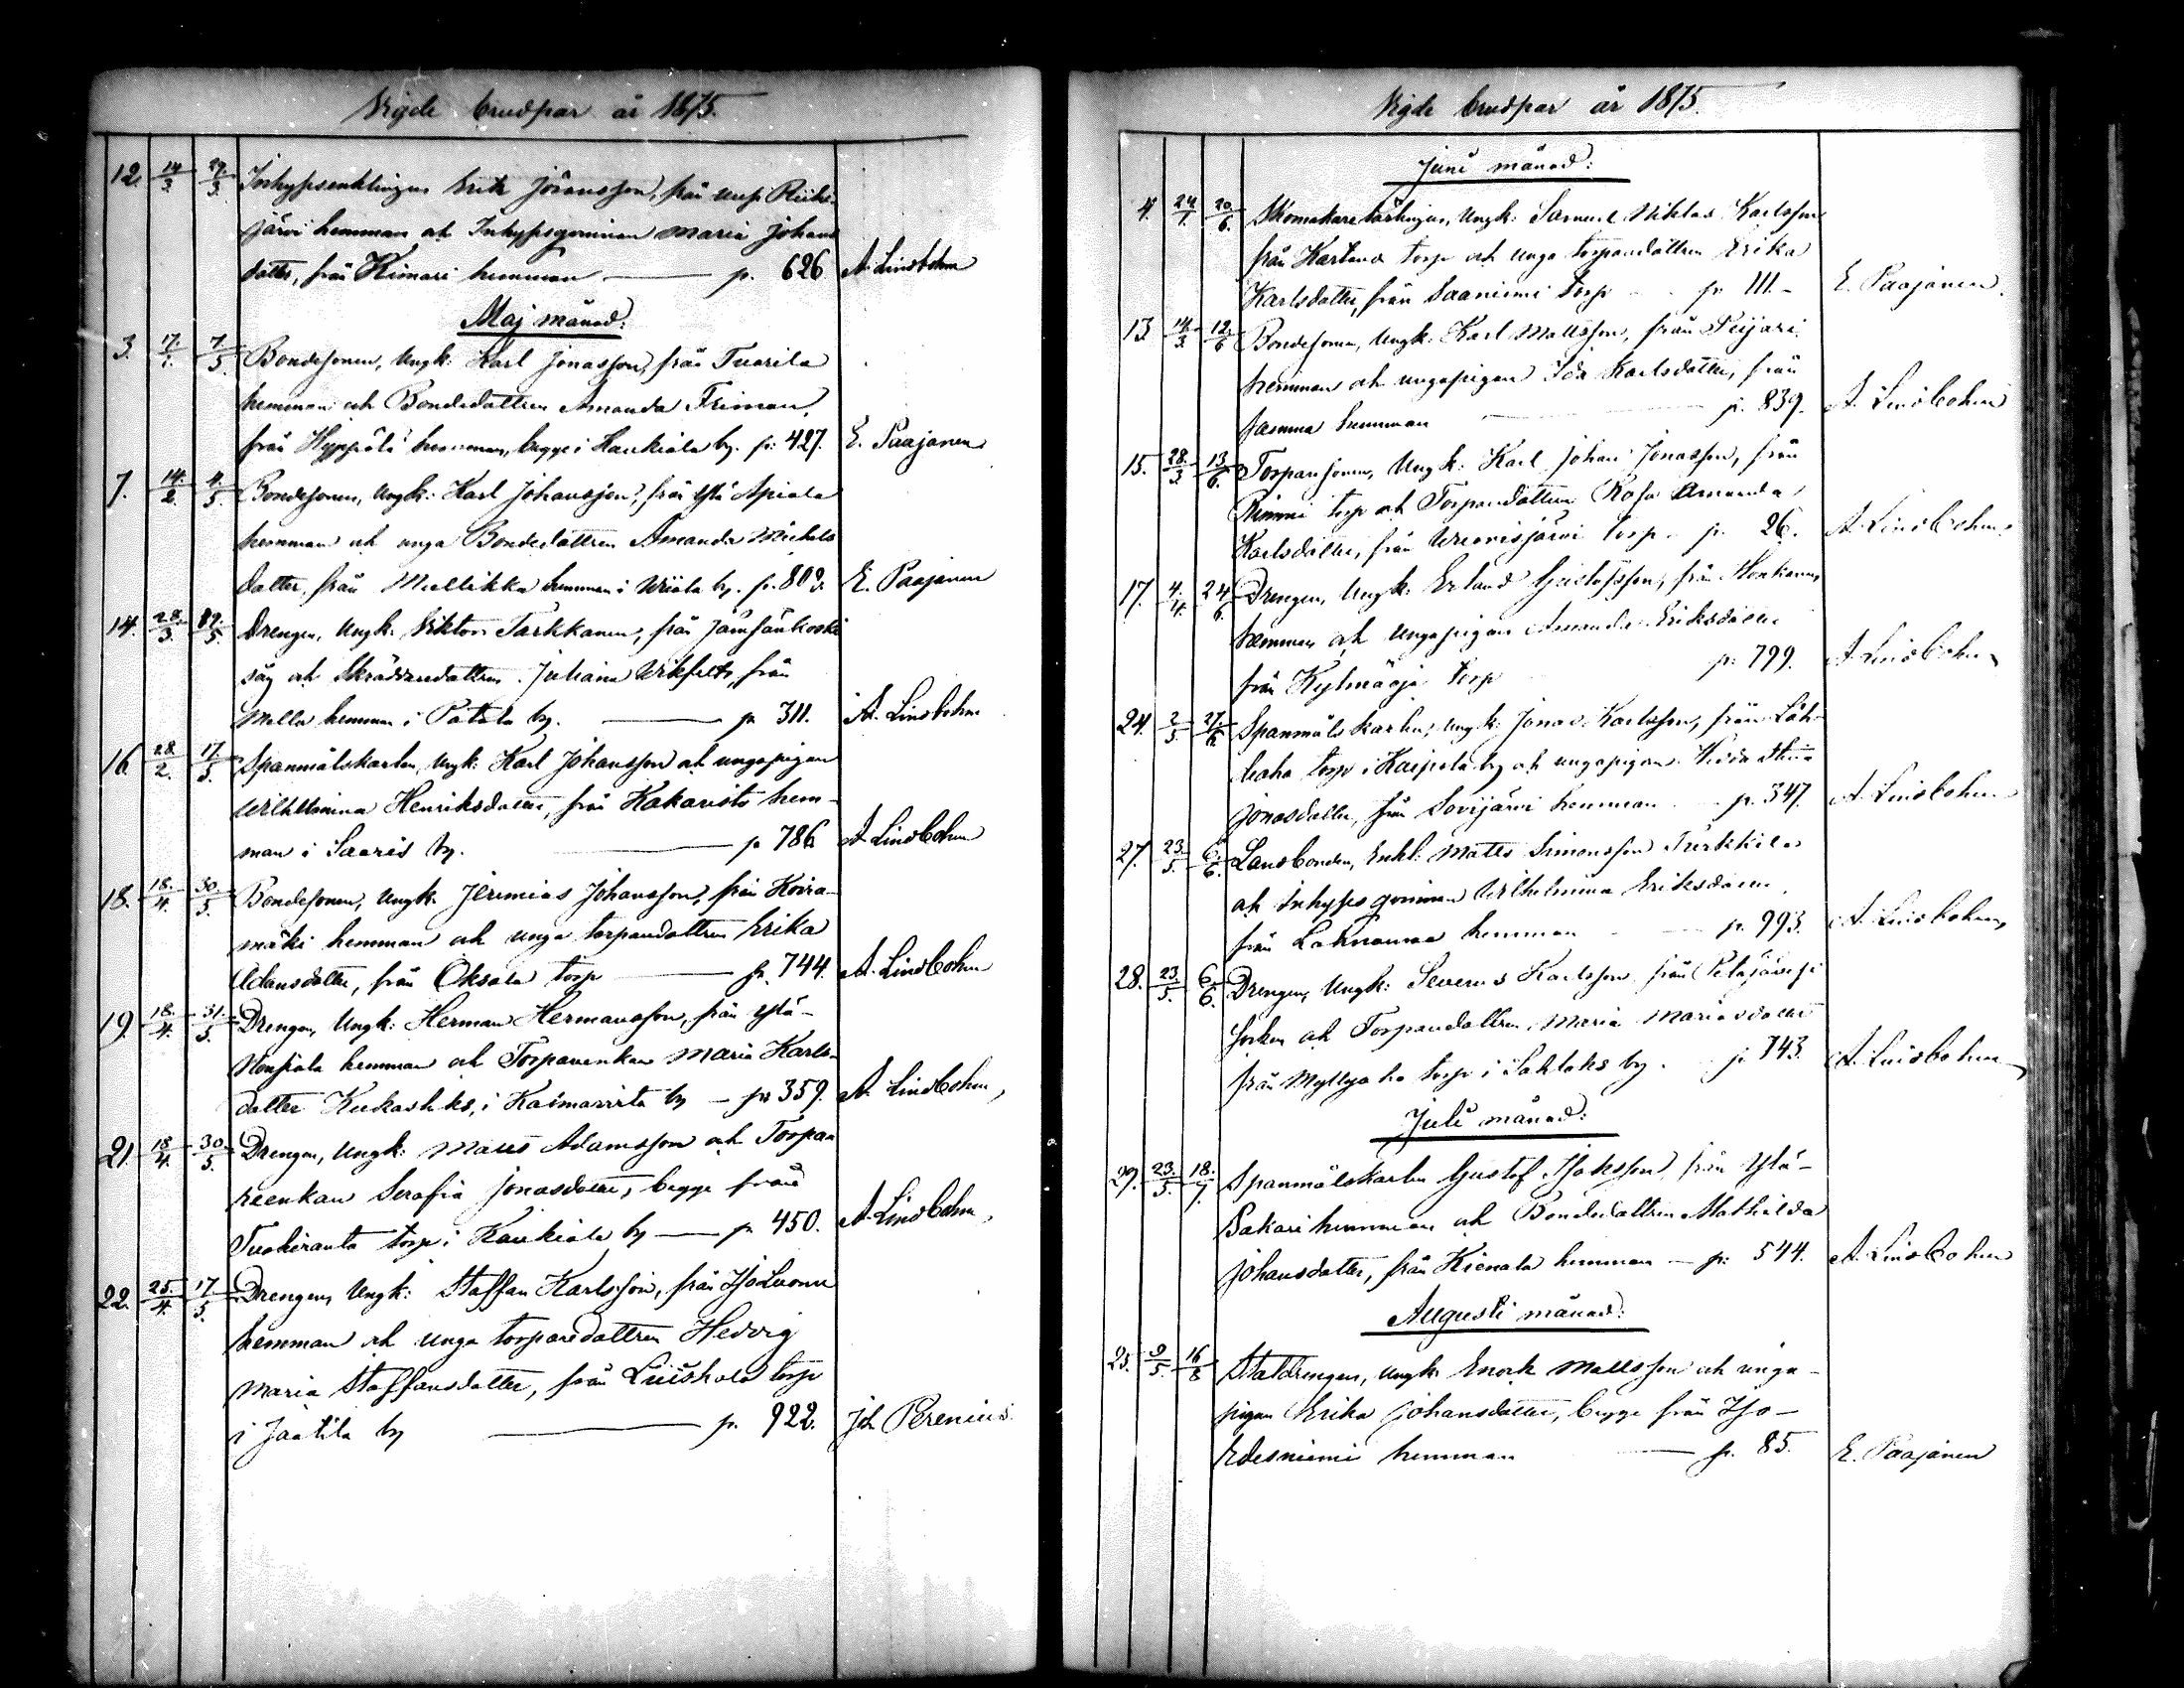 Vigde brudpar år 1875.
12. 14/3. 29/3. Inhysesenklingen Erik Jöransson, från
järvi hemman och Inhysesqvinnan Maria Johans
dotter, från Kimari hemman — p. 626 A. Lindbohm
Maj månad:
3. 17/1. 7/5. Bondesonen, Ungk: Karl Jonasson, från Tuorila
hemman och Bondedottren Amanda Friman,
från Hyppölä hemman, begge i Haukiala by. p: 427. E. Paajanen
7. 14/2. 4/5. Bondesonen, Ungk: Karl Johansson, från Ylä Apiala
hemman och unga Bondedottren Amanda Michels
dotter, från Mellikka hemman i by. p. E. Paajanen
14. 28/3. Drengen, Ungk: Viktor Tarkkanen, från Jämsänkoski
såg och Skräddaredottren Juliana från
Mella hemman i Patala by. — p. 311. A. Lindbohm
16. 28/2. 17/5. Spanmålskarlen, Ungk: Karl Johansson och ungapigan
Wilhelmina Henriksdotter, från Kakaristo hem-
man i Saaris by. — p 786 A Lindbohm
18. 18/4. 30/5. Bondesonen, Ungk: Jeremias Johansson, från Koira-
mäki hemman och unga torparedottren Erika
Adamsdotter, från Oksala torp — p. 744. A. Lindbohm
19. 18/4. 31/5. Drengen, Ungk: Herman Hermansson, från Ylä-
hemman och Torpareenkan Maria Karls-
dotter i by — p: 359. A. Lindbohm,
21. 18/4. 30/5. Drengen, Ungk: Matts Adamsson och Torpa
reenkan Serafia Jonasdotter, begge från
torp i Haukiala by — p. 450. A. Lindbohm,
22. 25/4. 17/5. Drengen, Ungk: Staffan Karlsson, från
hemman och unga torparedottren Hedvig
Maria Staffansdotter, från torp
i Jaatila by — p. 922. Joh Perenius.
Vigde brudpar år 1875.
Juni månad:
4. 24/1. 20/6. Skomakarelärlingen, Ungk: Samuel Niklas Karlsson
från torp och unga torparedottren Erika
Karlsdotter, från Saaniemi torp p. 111. E. Paajanen.
13. 14/3. 12/6. Bondesonen, Ungk: Karl Mattsson, från Peijari
hemman och ungapigan Ida Karlsdotter, från
samma hemman p. 839. A. Lindbohm
15. 28/3. 13/6. Torparesonen, Ungk: Karl Johan Jonasson, från
Niemi torp och Torparedottren Rosa Amanda
Karlsdotter, från torp. p. 26. A. Lindbohm.
17. 4/4. 24/6. Drengen, Ungk: Erland Gustafsson, från
hemman och Ungapigan Amanda Eriksdotter
från Kylmäoja torp p: 799. A. Lindbohm,
24. 2/5. 27/6. Spanmålskarlen, Ungk: Jonas Karlsson, från
torp i Kaipola by och ungapigan
Jonasdotter, från Sovijärvi hemman p. 347. A. Lindbohm
27. 23/5. 6/6. Landbonden, Enkl: Matts Simonsson
och Inhysesqvinnan Wilhelmina Eriksdotter,
från hemman p. 993. A. Lindbohm,
28. 23/5. 6/6. Drengen, Ungk: Severus Karlsson från Petäjävesi
socken och Torparedottren Maria
från Myllyaho torp i by. p. 743. A. Lindbohm,
Juli månad:
29. 23/5. 18/7. Spanmålskarlen Gustaf från Ylä-
Pakari hemman och Bondedottren Mathilda
Johansdotter, från Kienala hemman — p: 544. A. Lindbohm
Augusti månad:
25. 9/5. 16/8 Statdrengen, Ungk: Enock Mattsson och unga-
pigan Erika Johansdotter, begge från Iso-
Edesniemi hemman — p. 85. E. Paajanen